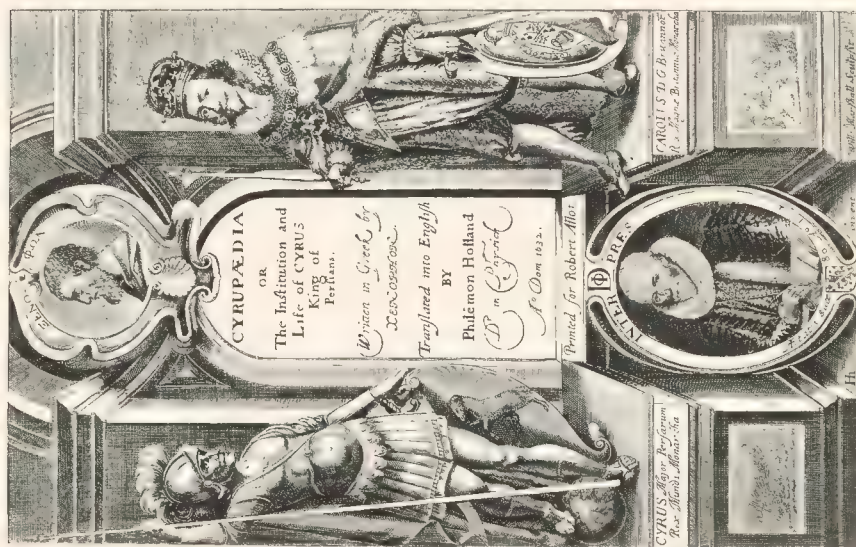 ΞΕΝΟΦΩΝ
CYRUPÆDIA
OR
The Inſtitution and
Life of CYRUS
King of
Perſians.
Written in Greek by
XENOPHON.
Tranſlated into Engliſh
BY
Philémon Holland
Dr in Phyſick
Ao Dom 1632.
Printed for Robert Allot
CYRUS Major Perſarum
Rex Mundi Monarcha
CAROLUS D. G. Britannor
Rex Magnæ Britanniæ Monarcha
INTER PRES
Will: Marſhall ſculpſit